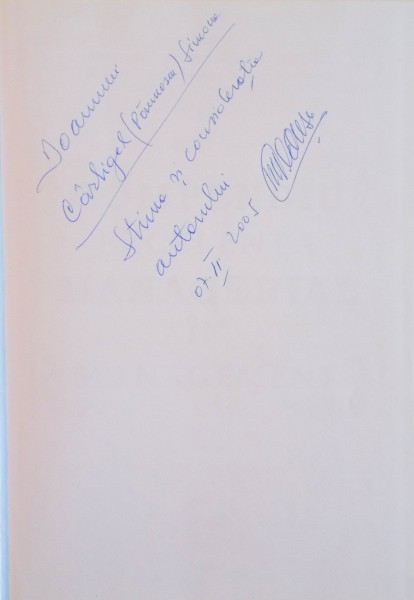 Doamnei
Cârligel (Păunescu) Simona
Stima și considerația
autorului
07.III 2005